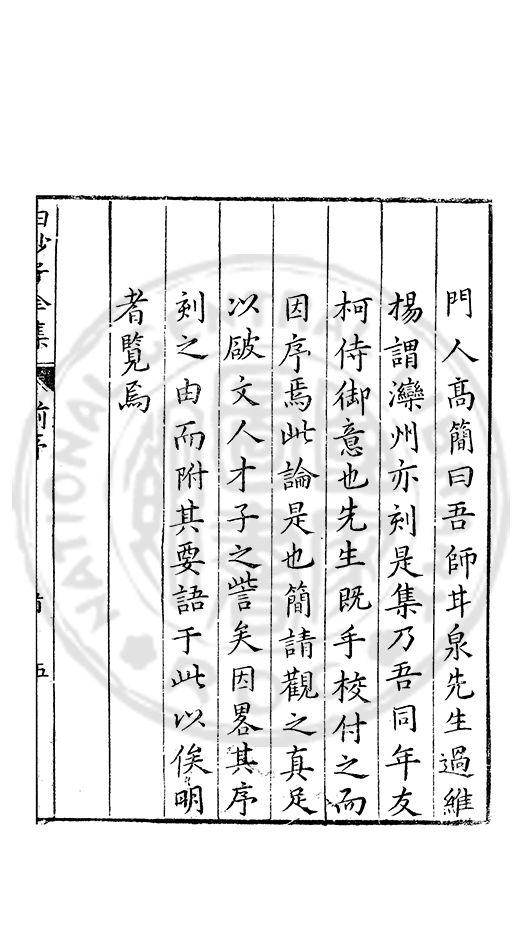 門人高簡曰吾師井泉先生過維
楊謂灤州亦刻是集乃吾同年友
柯侍御意也先生既手校付之而
因序焉此論是也簡請觀之真足
以破文人才子之訾矣因畧其序
刻之由而附其要語于此以俟明
者覽焉
白沙子全集
前序
五
NATIONAL